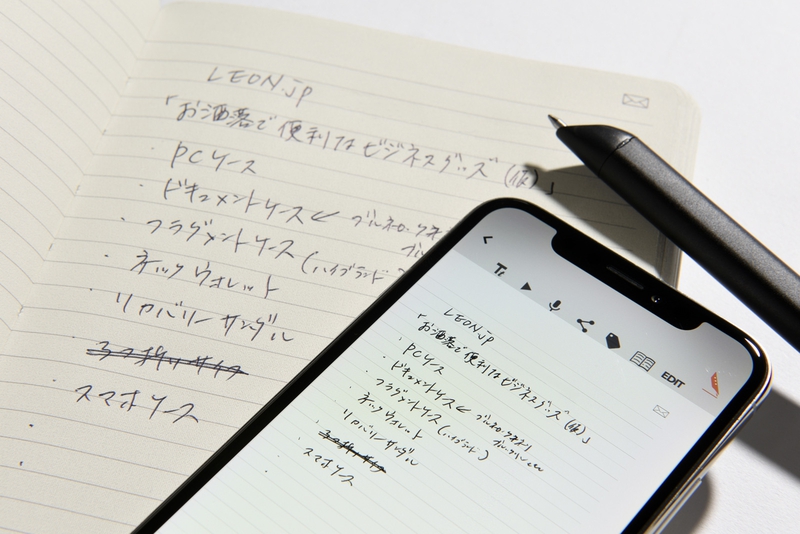 LEON.jp
「お洒落で便利なビジネスグッズ(仮)」
・PCケース
・ドキュメントケース← ブルネロ・クチネ
ブル
・フラグメントケース(ハイブランド
・ネックウォレット
・リカバリーサンダル
・三つ折りサイフ
・スマホケース
・
・
EDIT
LEON.jp
「お洒落で便利なビジネスグッズ(仮)」
・PCケース
・ドキュメントケース← ブルネロクチネリ
・フラグメントケース(ハイブランド)
・ネックウォレット
・リカバリーサンダル
・三つ折りサイフ
・スマホケース
・